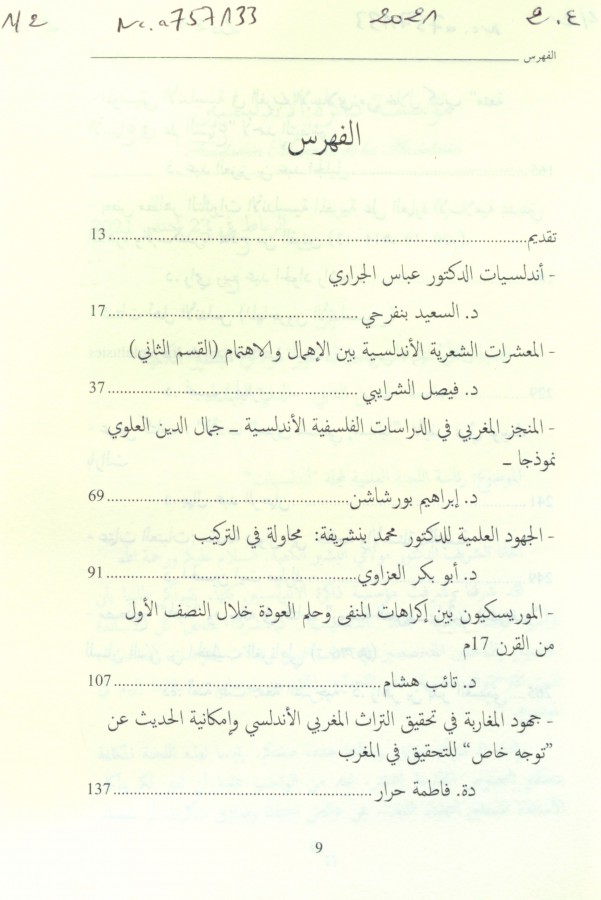 M2 Nc.a757133 2021 2.٤
الفهرس
الفهرس
تقديم......................................................................13
- أندلسيات الدكتور عباس الجراري
د. السعيد بنفرحي..............................................17
- المعشرات الشعرية الأندلسية بين الإهمال والاهتمام (القسم الثاني)
د. فيصل الشرايبي..............................................37
- المنجز المغربي في الدراسات الفلسفية الأندلسية ــ جمال الدين العلوي
نموذجا ــ
د. إبراهيم بورشاشن..............................................69
- الجهود العلمية للدكتور محمد بنشريفة: محاولة في التركيب
د. أبو بكر العزاوي..............................................91
- الموريسكيون بين إكراهات المنفى وحلم العودة خلال النصف الأول
من القرن 17م
د. تائب هشام..............................................107
- جهود المغاربة في تحقيق التراث المغربي الأندلسي وإمكانية الحديث عن
”توجه خاص“ للتحقيق في المغرب
دة. فاطمة حرار..............................................137
9